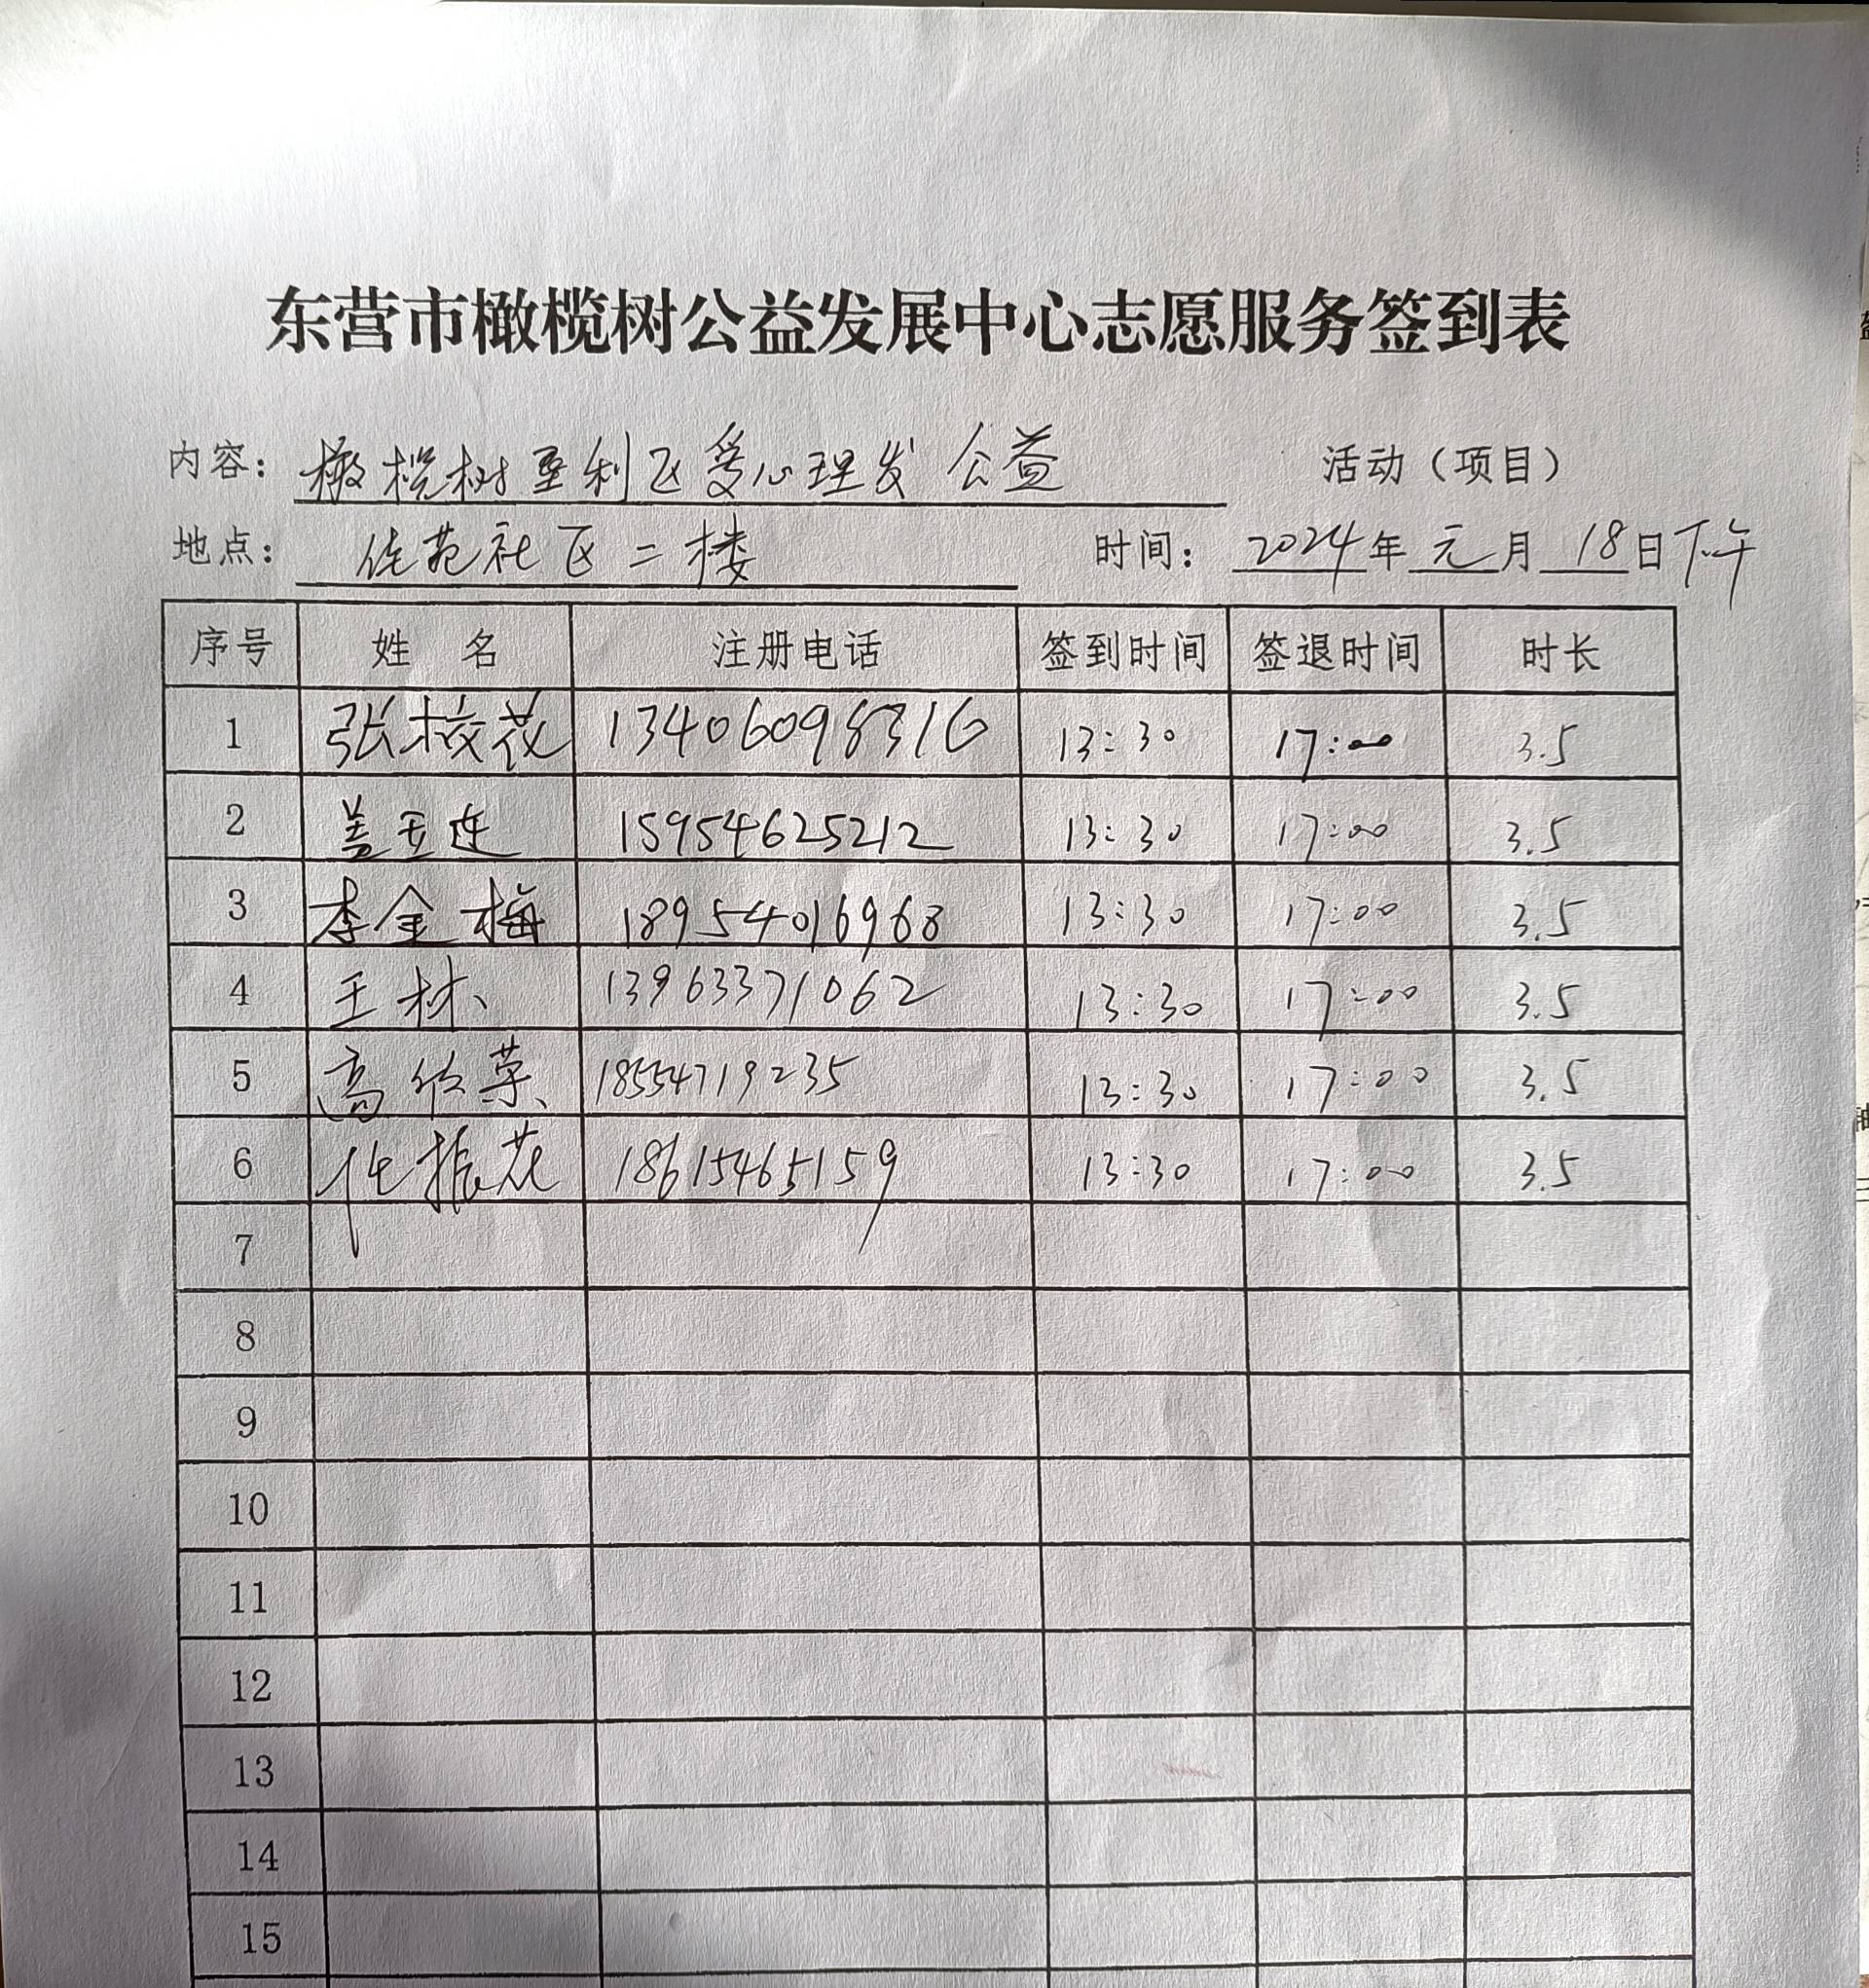 东营市橄榄树公益发展中心志愿服务签到表
内容：橄榄树垦利区爱心理发 公益 活动（项目）
地点：佳苑社区二楼 时间：2024年元月18日下午
序号 姓 名 注册电话 签到时间 签退时间 时长
1 张枝花 13406098316 13:30 17:00 3.5
2 盖玉莲 15954625212 13:30 17:00 3.5
3 李金梅 18954016968 13:30 17:00 3.5
4 王林 13963371062 13:30 17:00 3.5
5 高欣荣 18554719235 13:30 17:00 3.5
6 任振花 18615465159 13:30 17:00 3.5
7
8
9
10
11
12
13
14
15